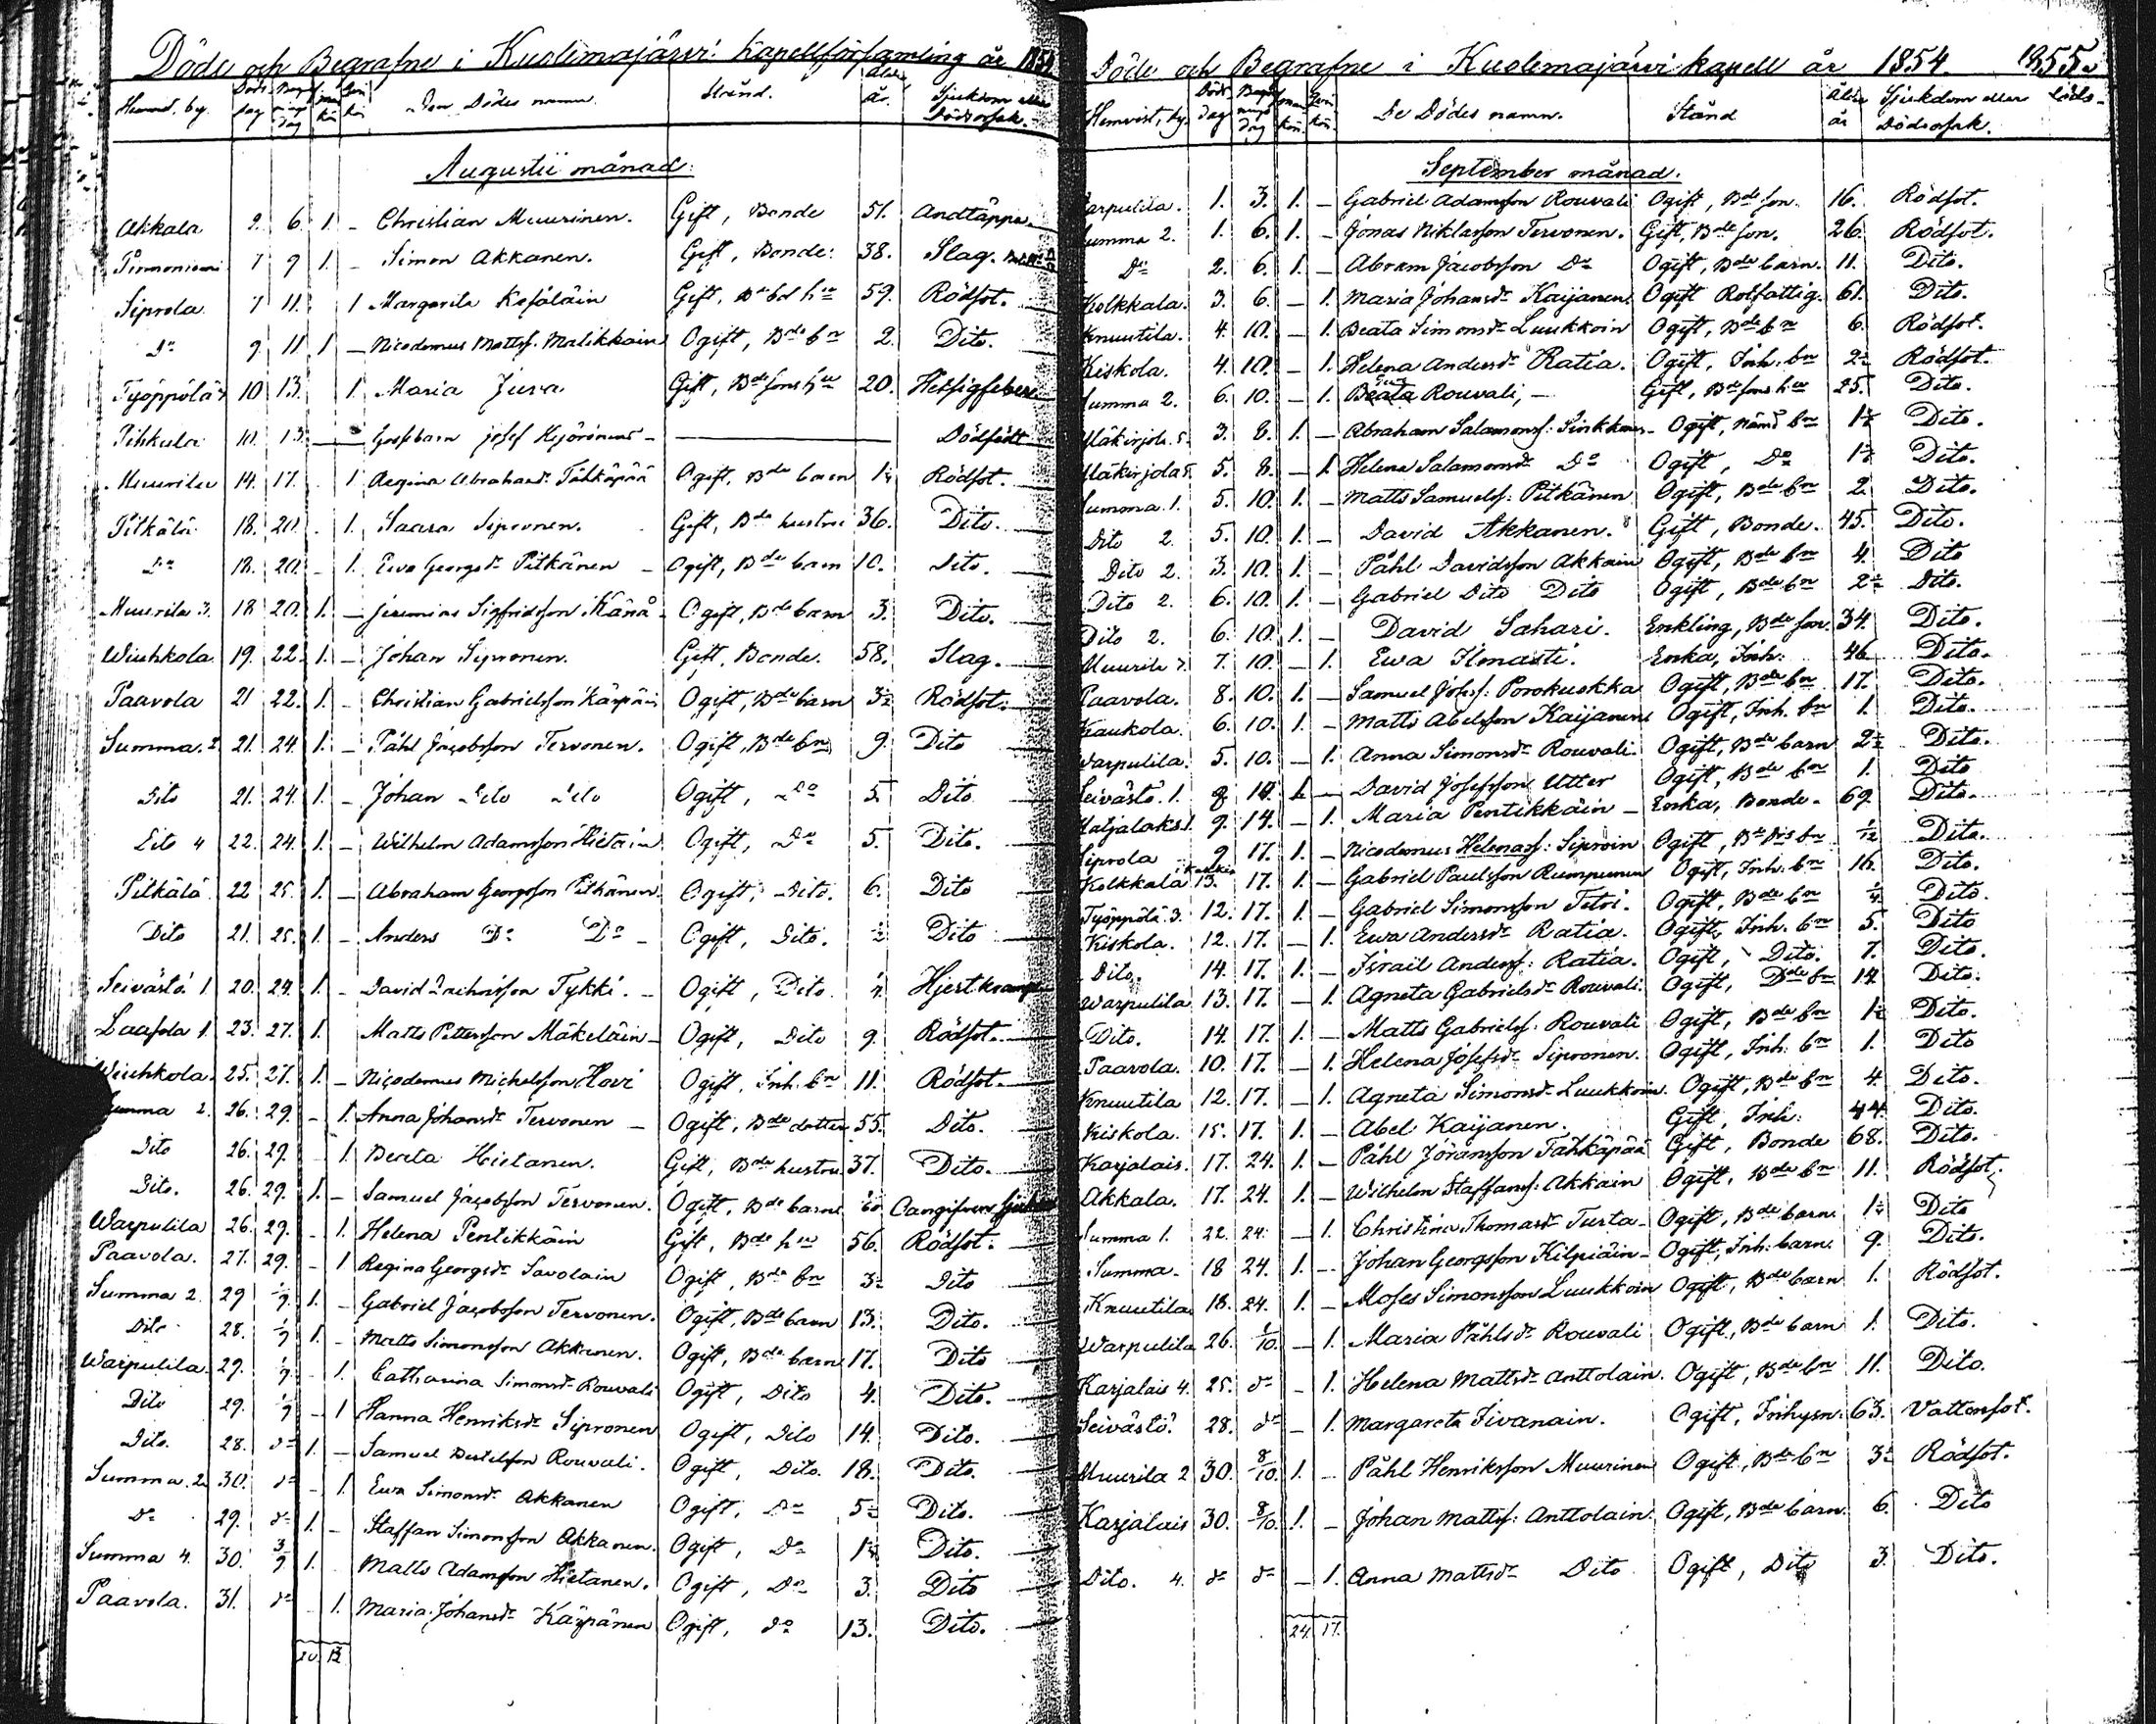 Döde och Begrafne i Kuolemajärvi kapellförsamling år 1854
Hemvist, by. Döds dag Begrafnings dag man kön qvin kön Den Dödes namn. Stånd. ålder år. Sjukdom eller Dödsorsak.
Augustii månad:
Akkala 2. 6. 1. - Christian Muurinen. Gift, Bonde 51. Andtäppa.
7 9 1. - Simon Akkanen. Gift, Bonde: 38. Slag.
Siprola 7 11. 1 Margareta Gift, 59. Rödsot.
Do 9. 11 1 - Nicodemus Mattss. Malikkain Ogift, Bde bn 2. Dito.
Työppölä 10 13. 1 Maria Juva Gift, Bde sons hu 20. Hetsigfeber
Pihkula 10. 13 - Gossbarn Josef - Dödfödt
Muurila 14. 17. 1 Regina Abrahamsdr Tähkäpää Ogift, Bde barn 1¼ Rödsot.
Pitkälä 18. 20. 1. Saara Sipronen. Gift, Bde hustru 36. Dito.
Do 18. 20. - 1. Ewa Georgsdr Pitkänen - Ogift, Bde barn 10. Dito.
Muurila 3. 18 20. 1. - Jeremias Sigfridsson Känä - Ogift, Bde barn 3. Dito.
Wiuhkola 19. 22. 1. - Johan Sipronen. Gift, Bonde. 58. Slag.
Paavola 21 22. 1. - Christian Gabrielsson Kärpäin Ogift, Bde barn 3½ Rödsot.
Summa. 2 21. 24. 1. - Påhl Jacobsson Tervonen. Ogift, Bde bn 9. Dito
Dito 21. 24. 1. - Johan Dito Dito Ogift, Do 5. Dito
Dito 4 22. 24. 1. - Wilhelm Adamsson Hietain Ogift, Do 5. Dito.
Pitkälä 22 25. 1. - Abraham Georgsson Pitkänen Ogift, Dito. 6. Dito
Dito 21. 25. 1. - Anders Do Do - Ogift, Dito. ½ Dito
Seivästö. 1 20. 24. 1. - David Zachrisson Tykki. - Ogift, Dito ¼ Hjertkramp
Laasola 1. 23. 27. 1. Matts Pettersson Mäkeläin - Ogift, Dito 9. Rödsot.
Wiuhkola. 25. 27. 1. - Nicodemus Michelsson Hovi Ogift, Inh. bn 11. Rödsot.
Summa 2. 26. 29. - 1. Anna Johansdr Tervonen - Ogift, Bde dotter 55. Dito.
Dito 26. 29. 1. Beata Hietanen. Gift, Bde hustru 37. Dito.
Dito. 26. 29. 1. - Samuel Jacobsson Tervonen. Ogift, Bde barn Oangifven sjukdom
Warpulila 26. 29. - 1. Helena Pentikkäin Gift, Bde hu 56. Rödsot.
Paavola. 27. 29. - 1 Regina Georgsdr Savolain Ogift, Bde bn 3½ Dito
Summa 2. 29 1/9. 1. - Gabriel Jacobsson Tervonen. Ogift, Bde barn 13. Dito.
Dito 28. 1/9 1. - Matts Simonsson Akkanen. Ogift, Bde barn 17. Dito
Warpulila. 29. 1/9 - 1. Catharina Simonsdr Rouvali Ogift, Dito 4. Dito.
Dito 29. 1/9 - 1 Hanna Henriksdr Sipronen Ogift, Dito 14. Dito.
Dito. 28. do 1. - Samuel Rouvali. Ogift, Dito. 18. Dito.
Summa. 2 30. do - 1. Ewa Simonsdr Akkanen Ogift, Do 5½ Dito.
Do 29. do 1. - Staffan Simonsson Akkanen. Ogift, Do 1¼ Dito.
Summa 4. 30. 3/9 1. Matts Adamsson Hietanen. Ogift, Do 3. Dito
Paavola. 31. do - 1. Maria Johansdr Kärpänen Ogift, do 13. Dito.
Döde och Begrafne i Kuolemajärvi kapell år 1854. 1855.
Hemvist, by. Döds dag Begrafnings dag man kön. qvin kön. De Dödes namn. Stånd Ålder år Sjukdom eller Dödsorsak.
September månad.
Warpulila. 1. 3. 1. - Gabriel Adamsson Rouvali Ogift, Bde son. 16. Rödsot.
Summa 2. 1. 6. 1. - Jonas Niklasson Tervonen. Gift, Bde son. 26. Rödsot.
Do 2. 6. 1. - Abram Jacobsson Do Ogift, Bde barn. 11. Dito.
Kolkkala. 3. 6. - 1. Maria Johansdr Kaijanen Ogift Rotfattig. 61. Dito.
Knuutila. 4. 10. - 1. Beata Simonsdr Luukkoin Ogift, Bde bn 6. Rödsot.
Kiskola. 4. 10. - 1. Helena Andersdr Ratia. Ogift, Inh. bn 2½ Rödsot.
Summa 2. 6. 10. - 1. Beata Rouvali, - Gift, Bde sons hu 25. Dito.
Mäkirjola. 5. 3. 8. 1. - Abraham Salamonss: Sinkkonen - Ogift, Nämd bn 1½ Dito.
Mäkirjola 5. 5. 8. - 1. Helena Salamonsdr Do Ogift, Do 1½ Dito.
Summa. 1. 5. 10. 1. - Matts Samuelss: Pitkänen Ogift, Bde bn 2. Dito.
Dito 2. 5. 10. 1. - David Akkanen. Gift, Bonde. 45. Dito.
Dito 2. 3. 10. 1. - Påhl Davidsson Akkain Ogift, Bde bn 4. Dito
Dito 2. 6. 10. 1. - Gabriel Dito Dito Ogift, Bde bn 2½ Dito.
Dito 2. 6. 10. 1. - David Sahari. Enkling, Bde son. 34. Dito.
Muurila 7. 7. 10. - 1. Ewa Ilmasti. Enka, Inh. 46 Dito.
Paavola. 8. 10. 1. - Samuel Josefs: Porokuokka Ogift, Bde bn 17. Dito.
Kaukola. 6. 10. 1. - Matts Abelsson Kaijanen Ogift, Inh. bn 1. Dito.
Warpulila. 5. 10. - 1. Anna Simonsdr Rouvali. Ogift, Bde barn 2½ Dito.
Seivästö. 1. 8 10. 1. - David Josefsson Utter Ogift, Bde bn 1. Dito
Hatjalaks. 1. 9. 14. - 1. Maria Pentikkäin - Enka, Bonde. 69. Dito.
Siprola 9 17. 1. - Nicodemus Helenass: Siproin Ogift, bn 1/12 Dito.
Kolkkala 13. 17. 1. - Gabriel Paulsson Rumpunen Ogift, Inh. bn 16. Dito.
Työppölä. 3. 12. 17. 1. - Gabriel Simonsson Tetri. Ogift, Bde bn ¼ Dito.
Kiskola. 12. 17. - 1. Ewa Andersdr Ratia. Ogift, Inh. bn 5. Dito
Dito. 14. 17. 1. - Israil Anderss: Ratia. Ogift, Dito. 7. Dito.
Warpulila 13. 17. - 1. Agneta Gabrielsdr Rouvali. Ogift, Bde bn 14. Dito.
Dito. 14. 17. 1. - Matts Gabrielss: Rouvali Ogift, Bde bn 1½ Dito.
Paavola. 10. 17. - 1. Helena Josefsdr Sipronen. Ogift, Inh. bn 1. Dito
Knuutila 12. 17. - 1. Agneta Simonsdr Luukkoin. Ogift, Bde bn 4. Dito.
Kiskola. 15. 17. 1. - Abel Kaijanen. Gift, Inh: 44. Dito.
Karjalais. 17. 24. 1. - Påhl Jöransson Tähkäpää Gift, Bonde 68. Dito.
Akkala. 17. 24. 1. - Wilhelm Staffanss: Akkain Ogift, Bde bn 11. Rödsot.
Summa 1. 22. 24. - 1. Christina Thomasdr Turta - Ogift, Bde barn 1½ Dito
Summa. 18 24. 1. - Johan Georgsson Kilpiäin - Ogift, Inh. barn. 9. Dito.
Knuutila 18. 24. 1. - Moses Simonsson Luukkoin Ogift, Bde barn 1. Rödsot.
Warpulila 26. 1/10. - 1. Maria Påhlsdr Rouvali Ogift, Bde barn 1. Dito.
Karjalais 4. 25. do - 1. Helena Mattsdr Anttolain. Ogift, Bde bn 11. Dito.
Seivästö. 28. do - 1. Margareta Sivanain. Ogift, Inhysn. 63. Vattensot.
Muurila 2 30. 8/10. 1. - Påhl Henriksson Muurinen Ogift, Bde bn 3½ Rödsot.
Karjalais 30. 8/10. 1. - Johan Mattss: Anttolain: Ogift, Bde barn. 6. Dito
Dito. 4. do do - 1. Anna Mattsdr Dito Ogift, Dito 3. Dito.
24. 17.